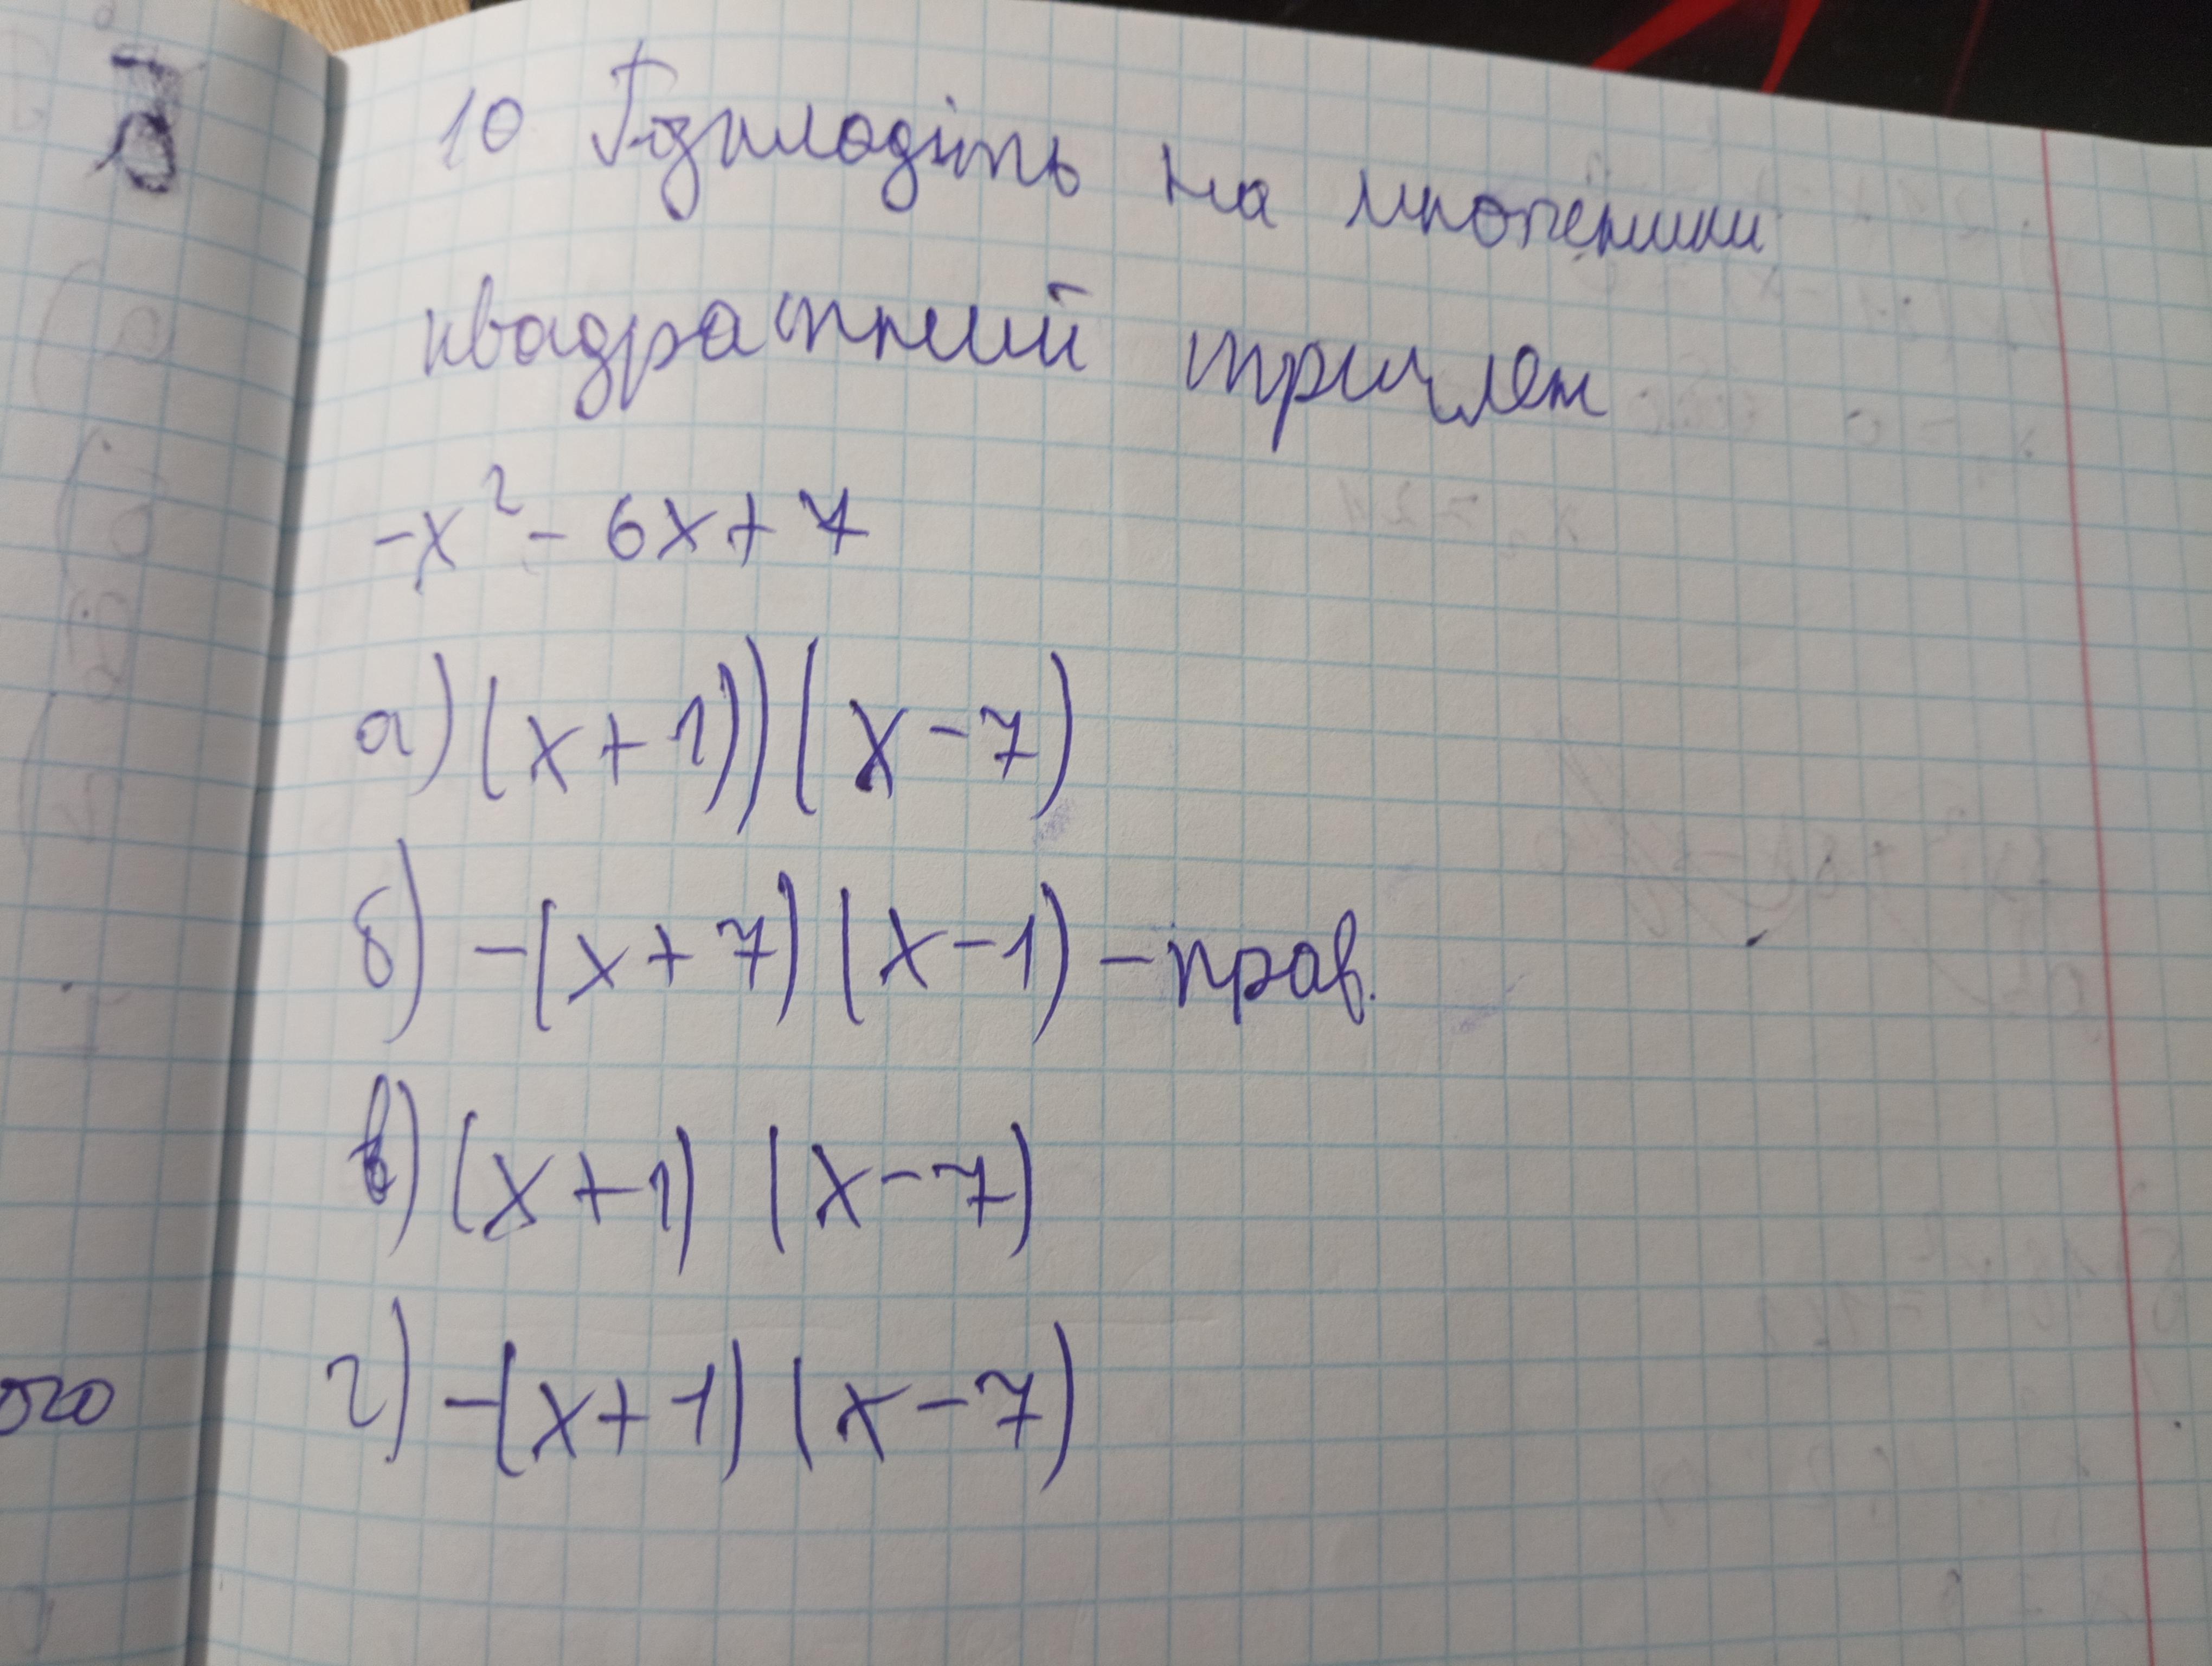 10 Розкладіть на множники
квадратний тричлен
-x² - 6x + 7
а) (x + 1)) (x - 7)
б) -(x + 7) (x - 1) - прав.
в) (x + 1) (x - 7)
г) -(x + 1) (x - 7)
ого